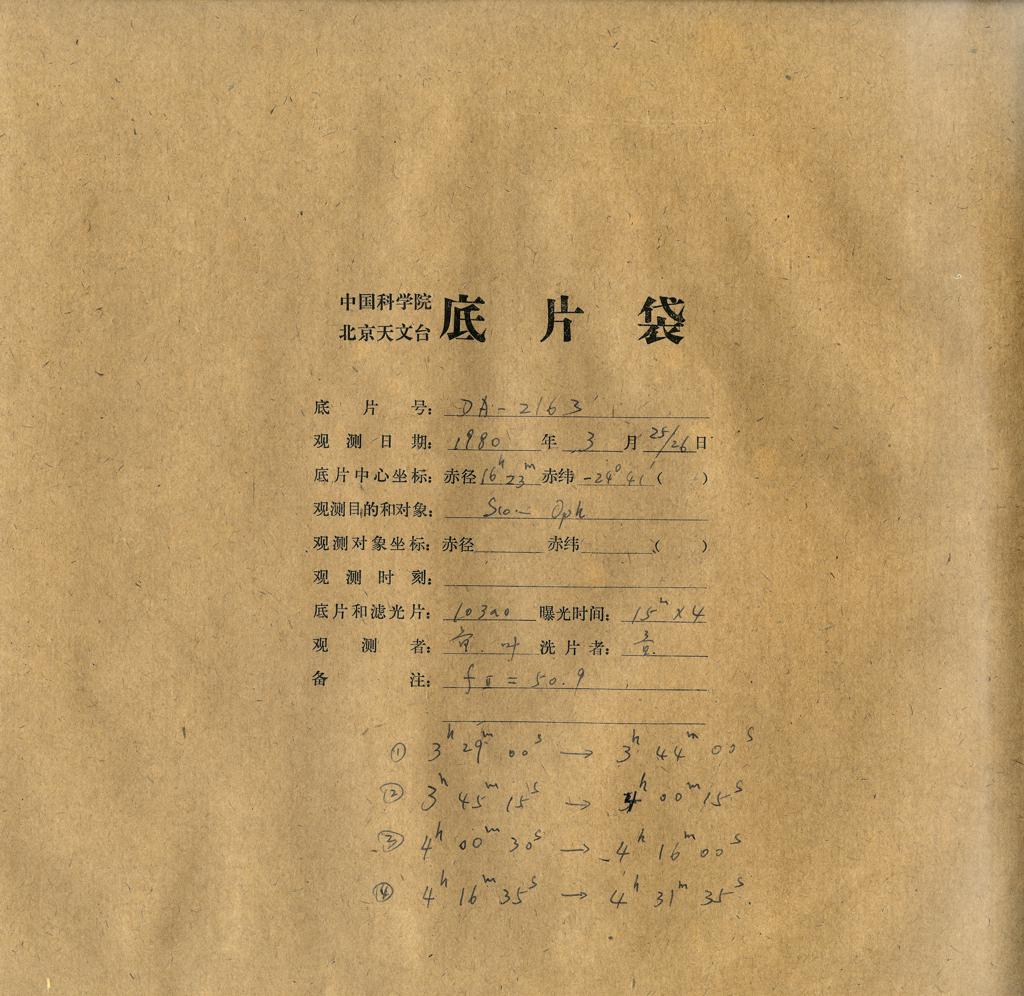 中国科学院
北京天文台
底片袋
底片号: DA-2163
观测日期: 1980 年 3 月 25/26 日
底片中心坐标: 赤径 16ʰ 23ᵐ 赤纬 -24° 41′ ( )
观测目的和对象: Sco- Oph
观测对象坐标: 赤径 赤纬 ( )
观测时刻:
底片和滤光片: 103a0 曝光时间: 15ᵐ X 4
观测者: 叶 洗片者:
备注: f II = 50.9
① 3ʰ 29ᵐ 00ˢ → 3ʰ 44ᵐ 00ˢ
② 3ʰ 45ᵐ 15ˢ → 4ʰ 00ᵐ 15ˢ
③ 4ʰ 00ᵐ 30ˢ → 4ʰ 16ᵐ 00ˢ
④ 4ʰ 16ᵐ 35ˢ → 4ʰ 31ᵐ 35ˢ